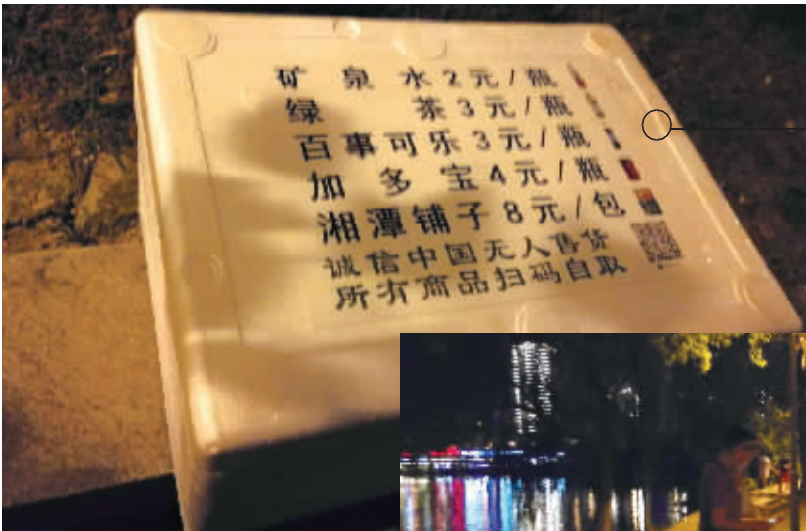 矿泉水2元/瓶
绿茶3元/瓶
百事可乐3元/瓶
加多宝4元/瓶
湘潭铺子8元/包
诚信中国无人售货
所有商品扫码自取